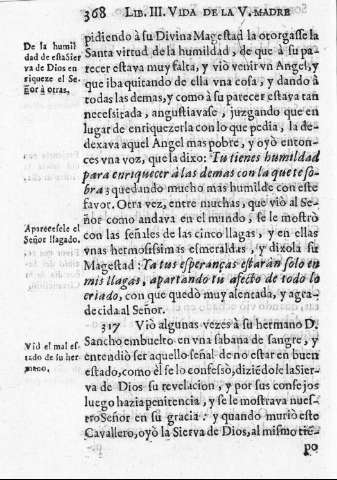 368 LIB. III. VIDA DE LA V. MADRE
De la humil
dad de estaSier
va de Dios en
riqueze el Se
ñor à otras.
pidiendo à su Divina Magestad la otorgasse la
Santa virtud de la humildad, de que à su pa-
recer estava muy falta, y viò venir vn Angel, y
que iba quitando de ella vna cosa, y dando à
todas las demas, y como à su parecer estava tan
necesitada, angustiavase, juzgando que en
lugar de enriquezerla con lo que pedia, la de-
dexava aquel Angel mas pobre, y oyò enton-
ces vna voz, que la dixo: Tu tienes humildad
para enriquecer à las demas con la que te so-
bra; quedando mucho mas humilde con este
favor. Otra vez, entre muchas, que viò al Se-
ñor como andava en el mundo, se le mostrò
con las señales de las cinco llagas, y en ellas
vnas hermosissimas esmeraldas, y dixola su
Magestad: Ta tus esperanças estaràn solo en
mis llagas, apartando tu afecto de todo lo
criado, con que quedò muy alentada, y agra-
decida al Señor.
Aparecesele el
Señor llagado.
317 Viò algunas vezes à su hermano D.
Sancho embuelto en vna sabana de sangre, y
entendiò ser aquello señal de no estar en buen
estado, como èl se lo confessò, diziédole la Sier-
va de Dios su revelacion, y por sus consejos
luego hazia penitencia, y se le mostrava nues-
tro Señor en su gracia: y quando muriò este
Cavallero, oyò la Sierva de Dios, al mismo tié-
po
Viò el mal es-
tado de su her
mano.